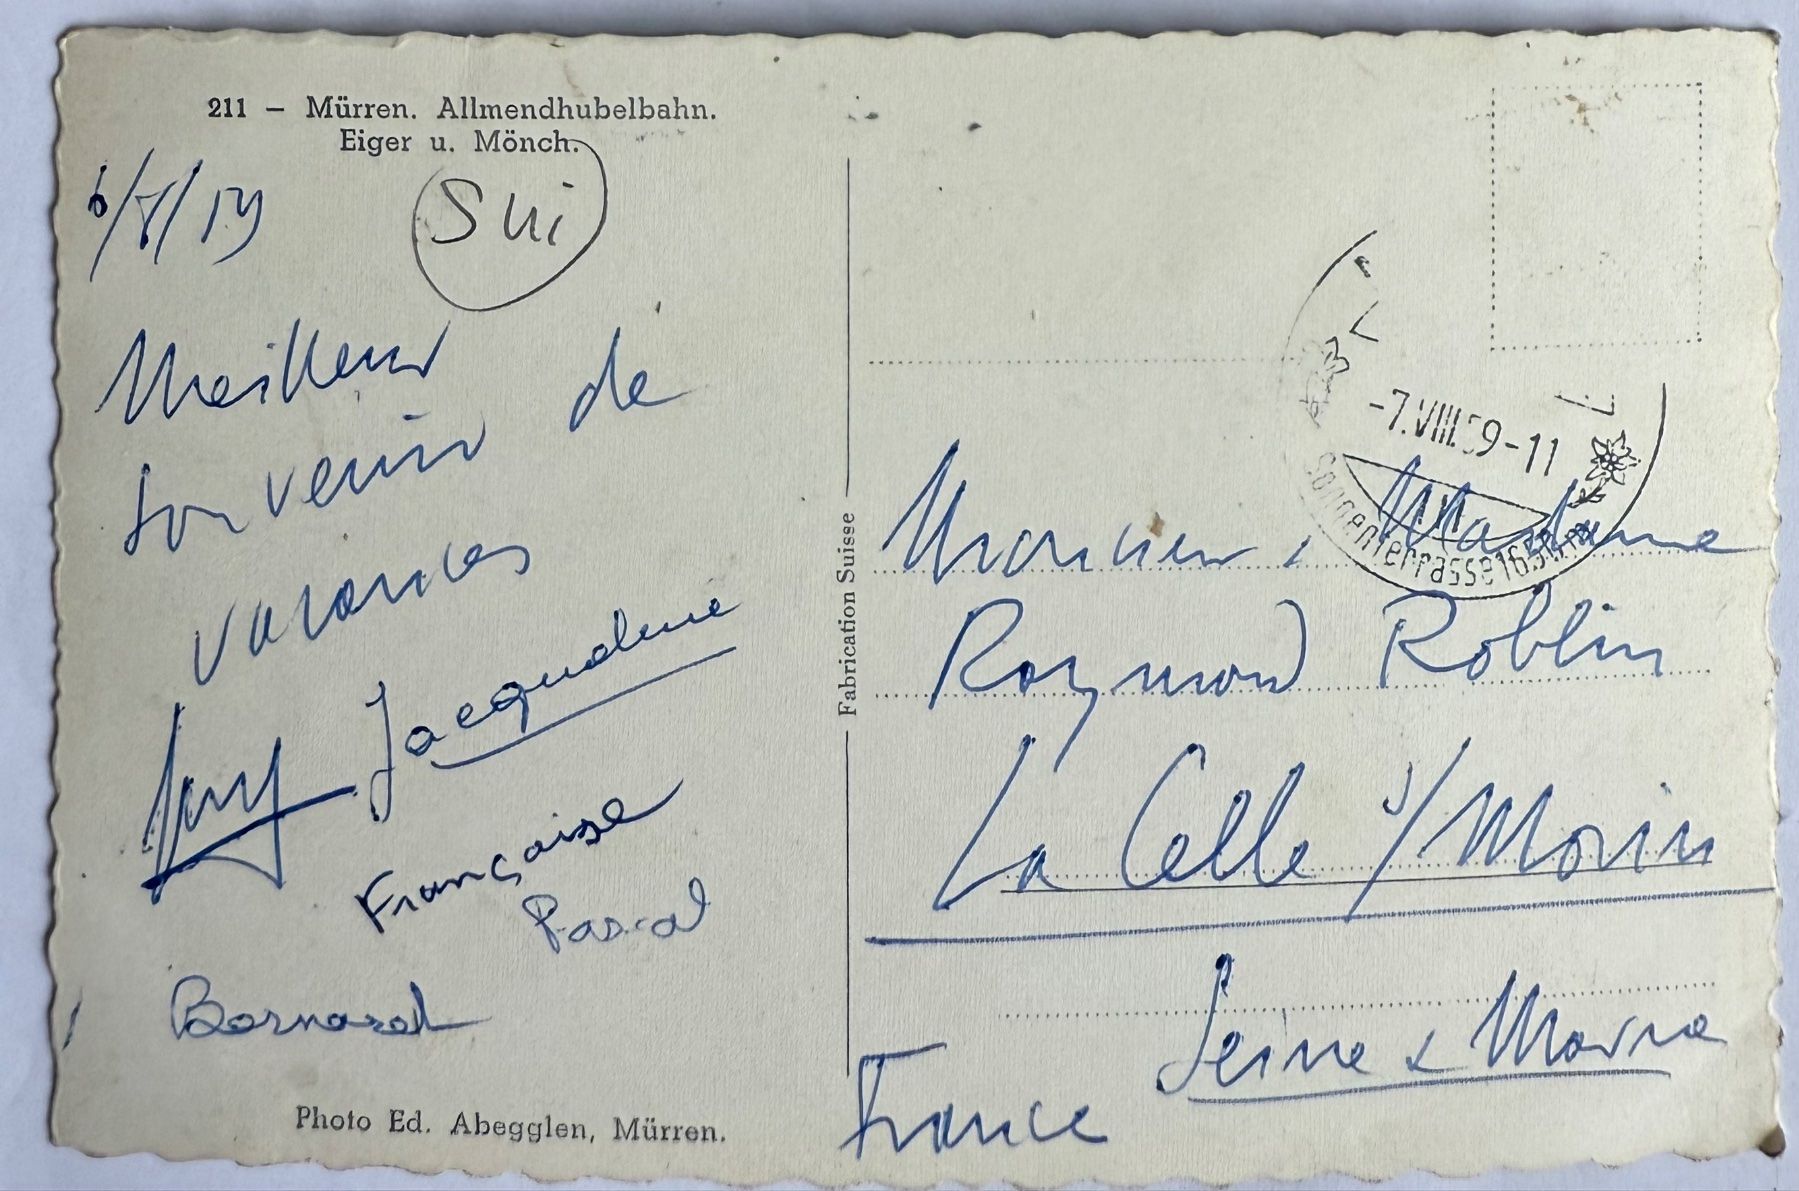 211 — Mürren. Allmendhubelbahn.
Eiger u. Mönch.
Sui
Meilleur
souvenir de
vacances
Jacqueline
Françoise
Pascal
Bernard
Photo Ed. Abegglen, Mürren.
Fabrication Suisse
-7.VIII.59-11
Sonnenterrasse 1650m
Monsieur & Madame
Raymond Roblin
La Celle s/ Morin
Seine & Marne
France